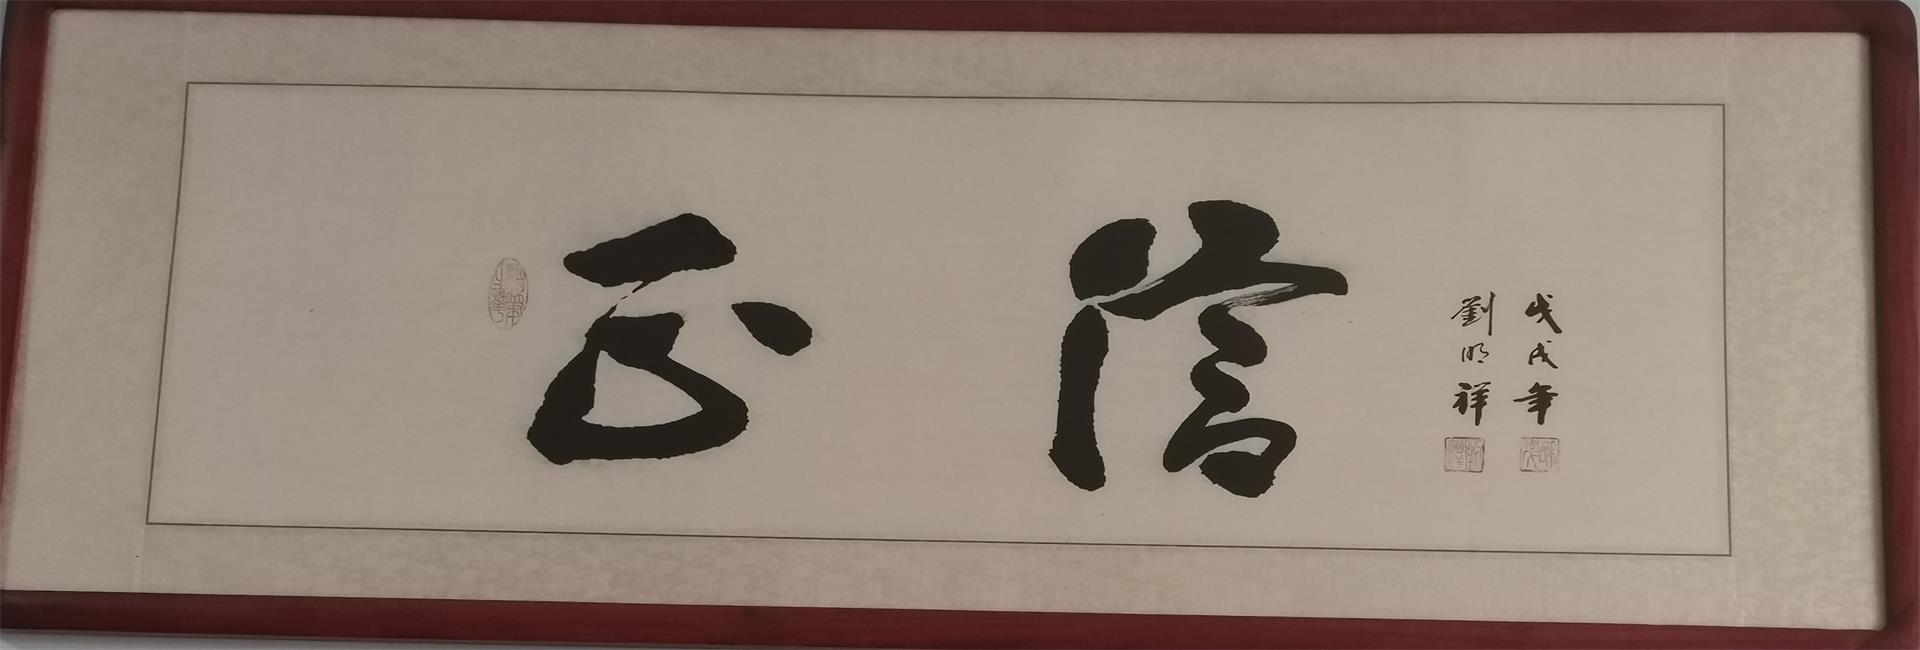 至信
戊戌年
劉明祥